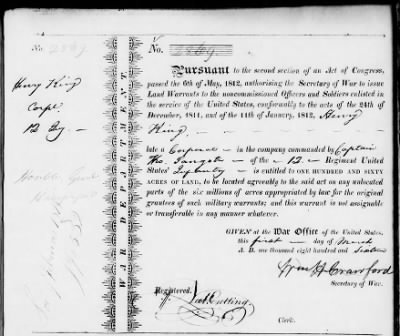 No. 2849
No. 2849
Henry King
Corpl.
12 Reg.
WAR DEPARTMENT.
Pursuant to the second section of an Act of Congress,
passed the 6th of May, 1812, authorising the Secretary of War to issue
Land Warrants to the noncommissioned Officers and Soldiers enlisted in
the service of the United States, conformably to the acts of the 24th of
December, 1811, and of the 11th of January, 1812, Henry
King,
late a Corporal in the company commanded by Captain
Tho. Sangster of the 12 Regiment United
States' Infantry is ENTITLED TO ONE HUNDRED AND SIXTY
ACRES OF LAND, to be located agreeably to the said act on any unlocated
parts of the six millions of acres appropriated by law for the original
grantees of such military warrants; and this warrant is not assignable
or transferable in any manner whatever.
GIVEN at the War Office of the United States,
this first day of March
A. D. one thousand eight hundred and sixteen
Wm H Crawford
Secretary of War.
Registered.
Cutting
Clerk.